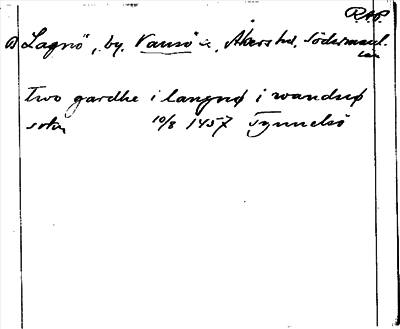 RAP.
B Lagnö, by, Vansö sn, Åkers hd, Södermanl.
län
two gardhe i langnø i wandsø
sokn 10/8 1457 Tynnelsö